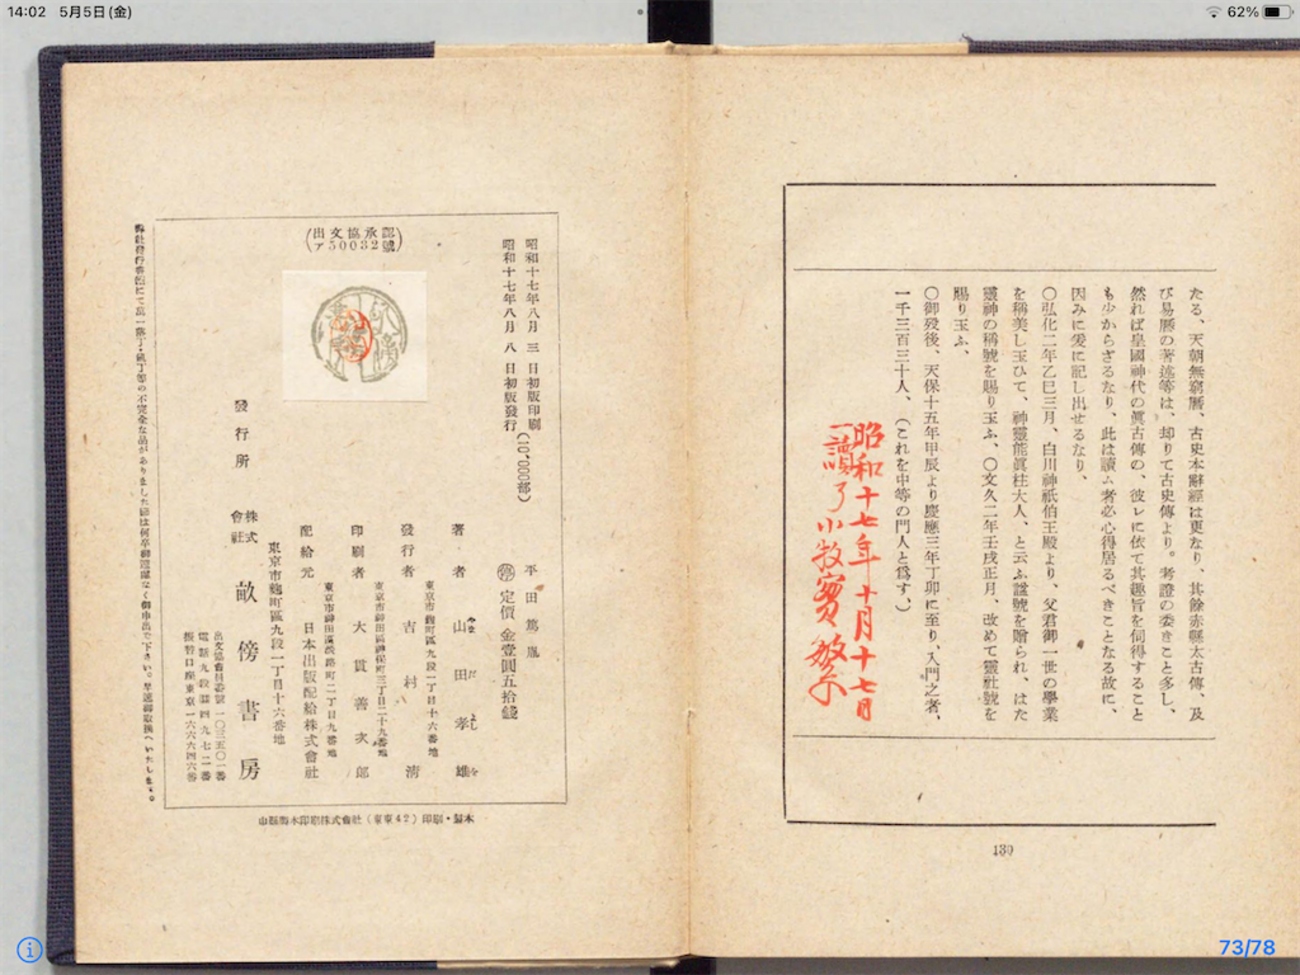 14:02 5月5日(金)
62%
たる、天朝無窮暦、古史本辭經は更なり、其餘赤縣太古傳、及
び易暦の著述等は、却りて古史傳より。考證の委きこと多し、
然れば皇國神代の眞古傳の、彼レに依て其趣旨を伺得すること
も少からざるなり、此は讀ム者必心得居るべきことなる故に、
因みに爰に記し出せるなり、
〇弘化二年乙巳三月、白川神祇伯王殿より、父君御一世の學業
を稱美し玉ひて、神靈能眞柱大人、と云ふ諡號を贈られ、はた
靈神の稱號を賜り玉ふ、〇文久二年壬戌正月、改めて靈社號を
賜り玉ふ、
〇御歿後、天保十五年甲辰より慶應三年丁卯に至り、入門之者、
一千三百三十人、(これを中等の門人と爲す、)
昭和十七年十月十七日
一讀了 小牧實繁
130
昭和十七年八月 三 日初版印刷
昭和十七年八月 八 日初版發行
(10,000部)
平田篤胤
停 定價 金壹圓五拾錢
出文協承認
ア50032號
著者 山田孝雄
やま だ よし を
東京市麹町區九段一丁目十六番地
發行者 吉村淸
東京市神田區神保町三丁目二十九番地
印刷者 大貫善次郎
東京市神田區淡路町二丁目九番地
配給元 日本出版配給株式會社
東京市麹町區九段一丁目十六番地
發行所 株式會社 畝傍書房
出文協會員番號一〇三五〇一番
電話九段圖四九七二番
振替口座東京一六六六四六番
73/78